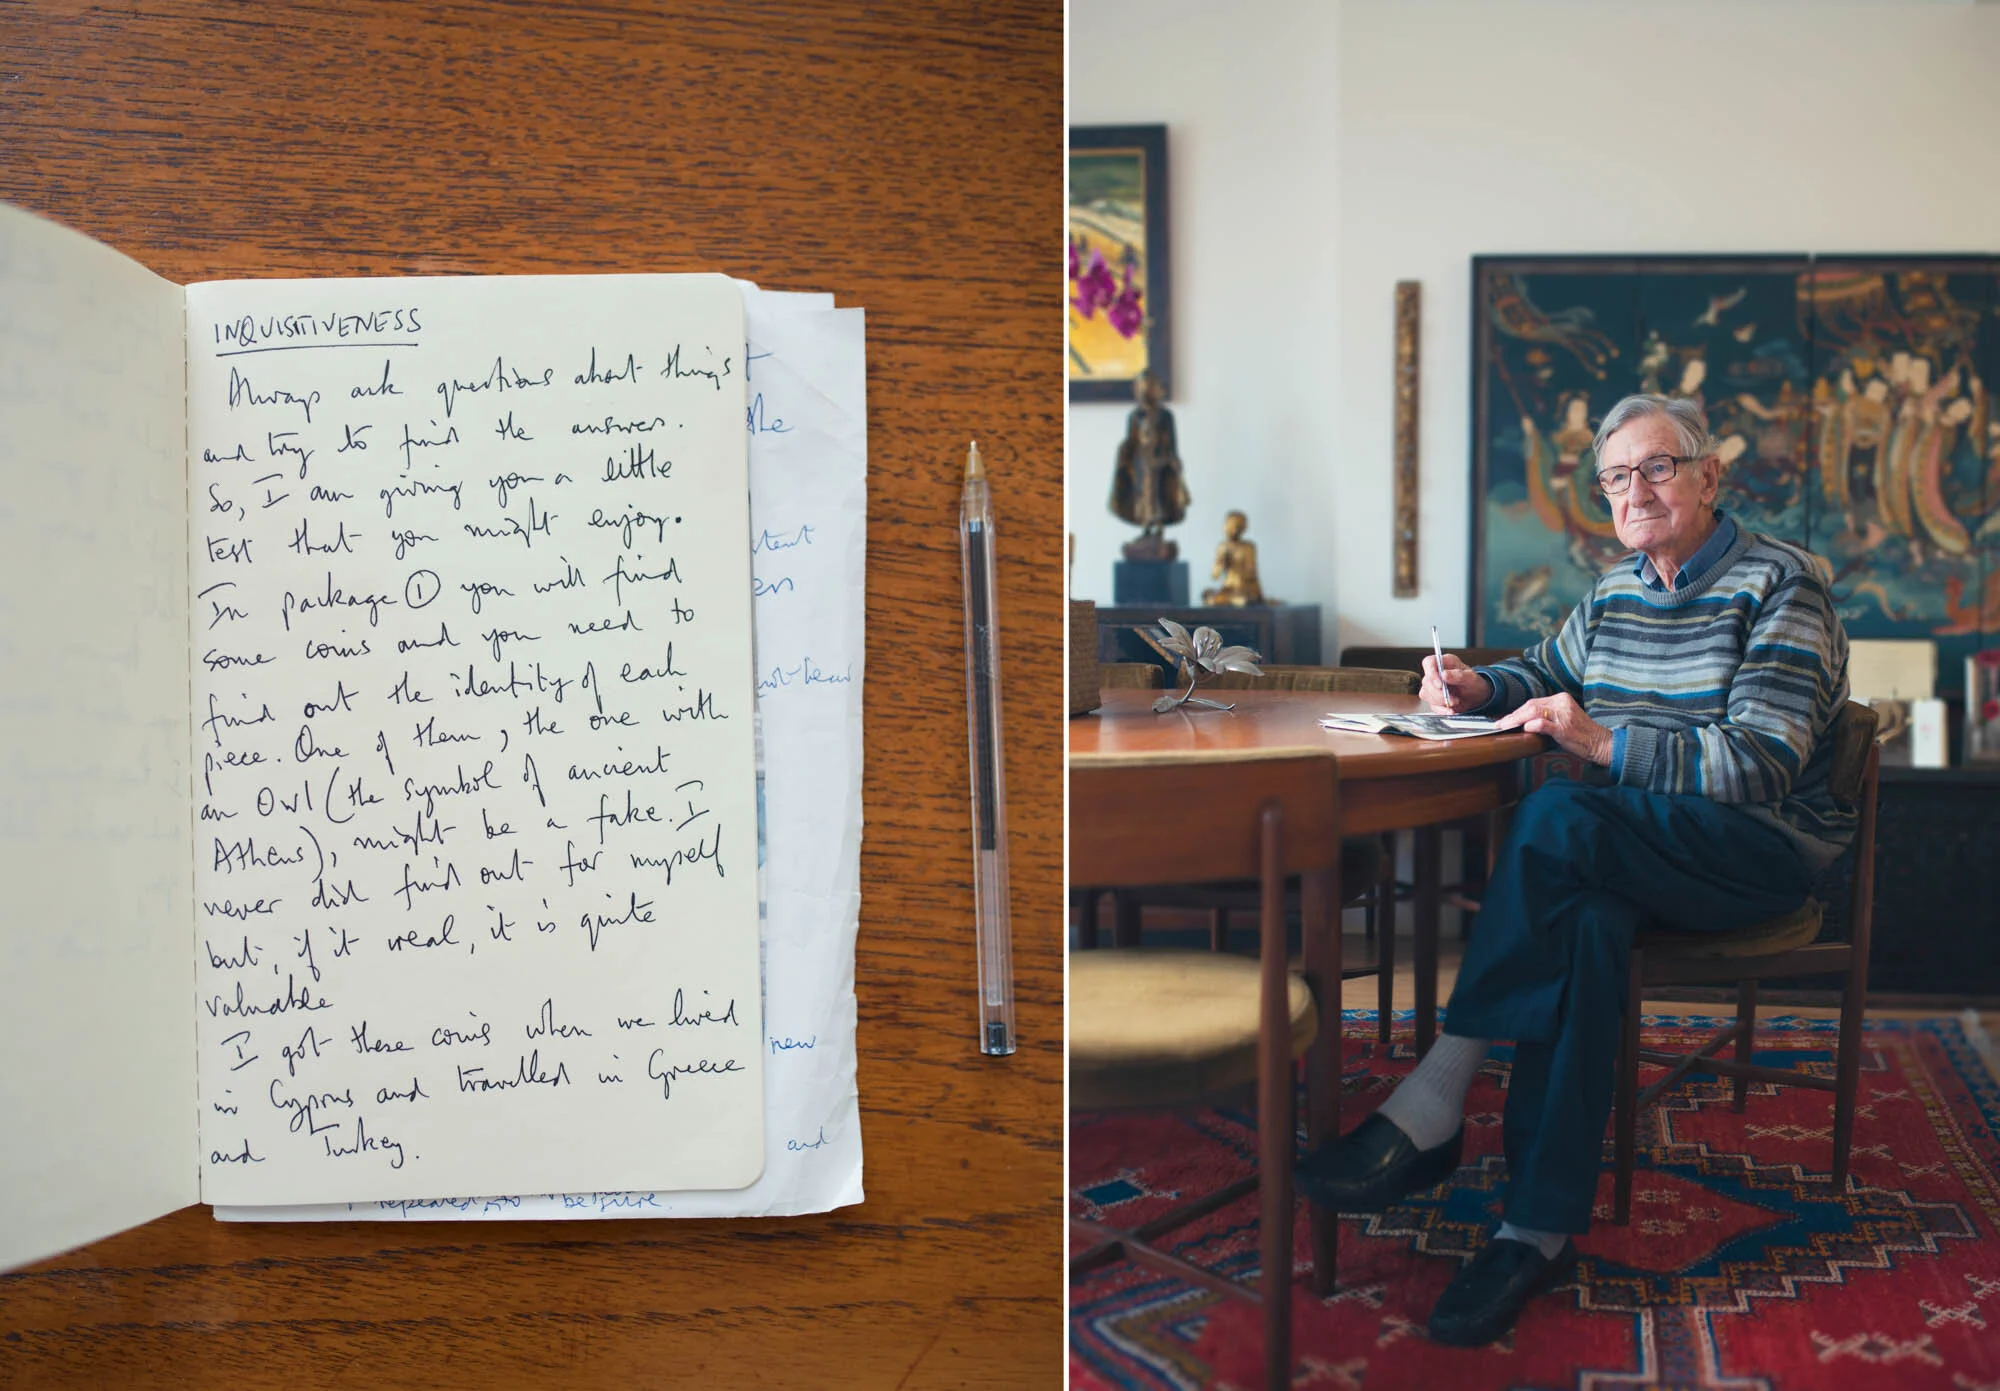 INQUISITIVENESS
Always ask questions about things
and try to find the answers.
So, I am giving you a little
test that you might enjoy.
In package ① you will find
some coins and you need to
find out the identity of each
piece. One of them, the one with
an Owl (the symbol of ancient
Athens), might be a fake. I
never did find out for myself
but, if it real, it is quite
valuable
I got these coins when we lived
in Cyprus and travelled in Greece
and Turkey.
the
not hear
new
and
repeated, to be sure.